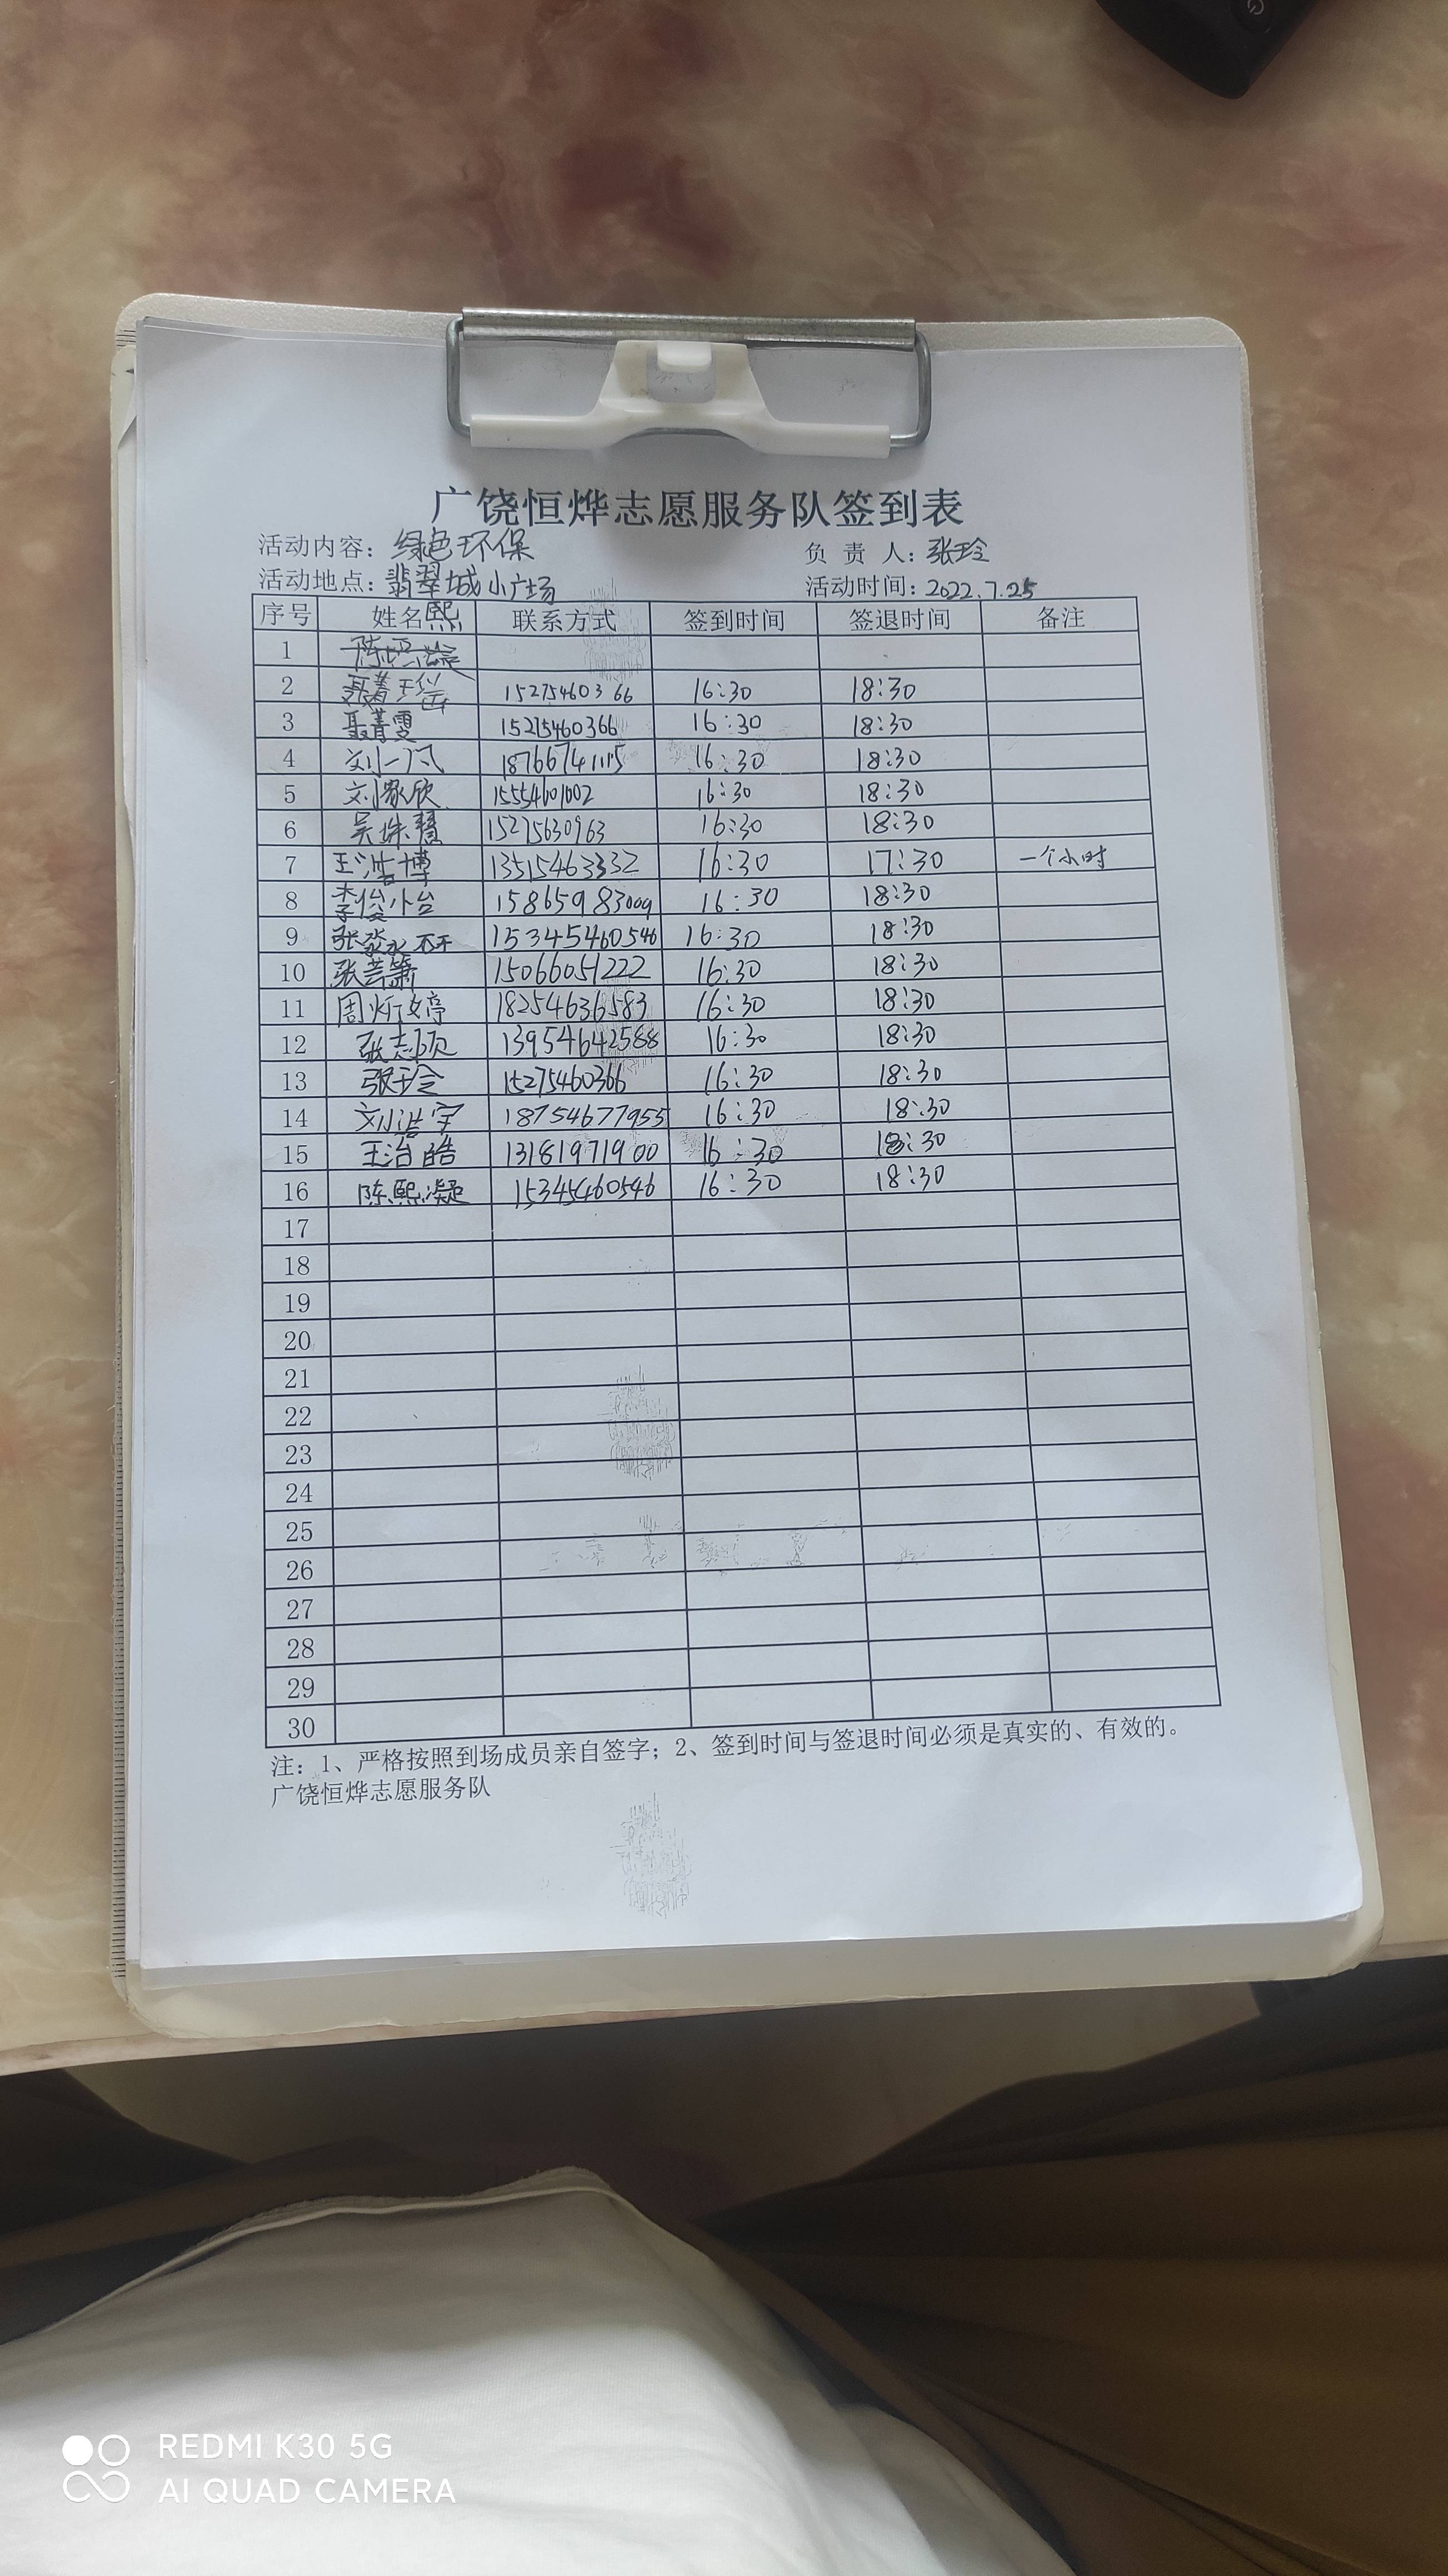 广饶恒烨志愿服务队签到表
活动内容：绿色环保 负责人：张玲
活动地点：翡翠城小广场 活动时间：2022.7.25
序号 姓名 联系方式 签到时间 签退时间 备注
熙
1
2 15275460366 16:30 18:30
3 聂菁雯 15275460366 16:30 18:30
4 刘一凡 18766741115 16:30 18:30
5 刘家欣 15554601002 16:30 18:30
6 吴姝慧 15275630963 16:30 18:30
7 王浩博 13515463332 16:30 17:30 一个小时
8 李俊怡 15865983009 16:30 18:30
9 张淼 15345460546 16:30 18:30
10 张芸箫 15066051222 16:30 18:30
11 周炘婷 18254636583 16:30 18:30
12 张志颀 13954642588 16:30 18:30
13 张玲 15275460366 16:30 18:30
14 刘浩宇 18754677955 16:30 18:30
15 王治皓 13181971900 16:30 18:30
16 陈熙凝 15345460546 16:30 18:30
17
18
19
20
21
22
23
24
25
26
27
28
29
30
注：1、严格按照到场成员亲自签字；2、签到时间与签退时间必须是真实的、有效的。
广饶恒烨志愿服务队
REDMI K30 5G
AI QUAD CAMERA